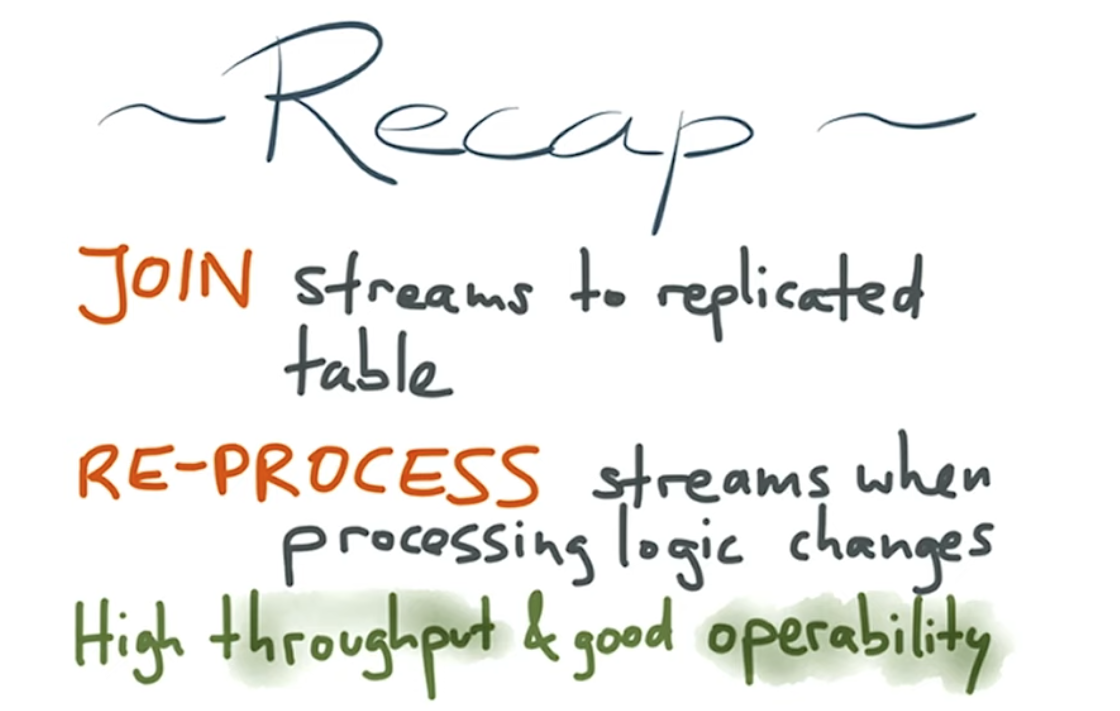 ~ Recap ~
JOIN streams to replicated
table
RE-PROCESS streams when
processing logic changes
High throughput & good operability